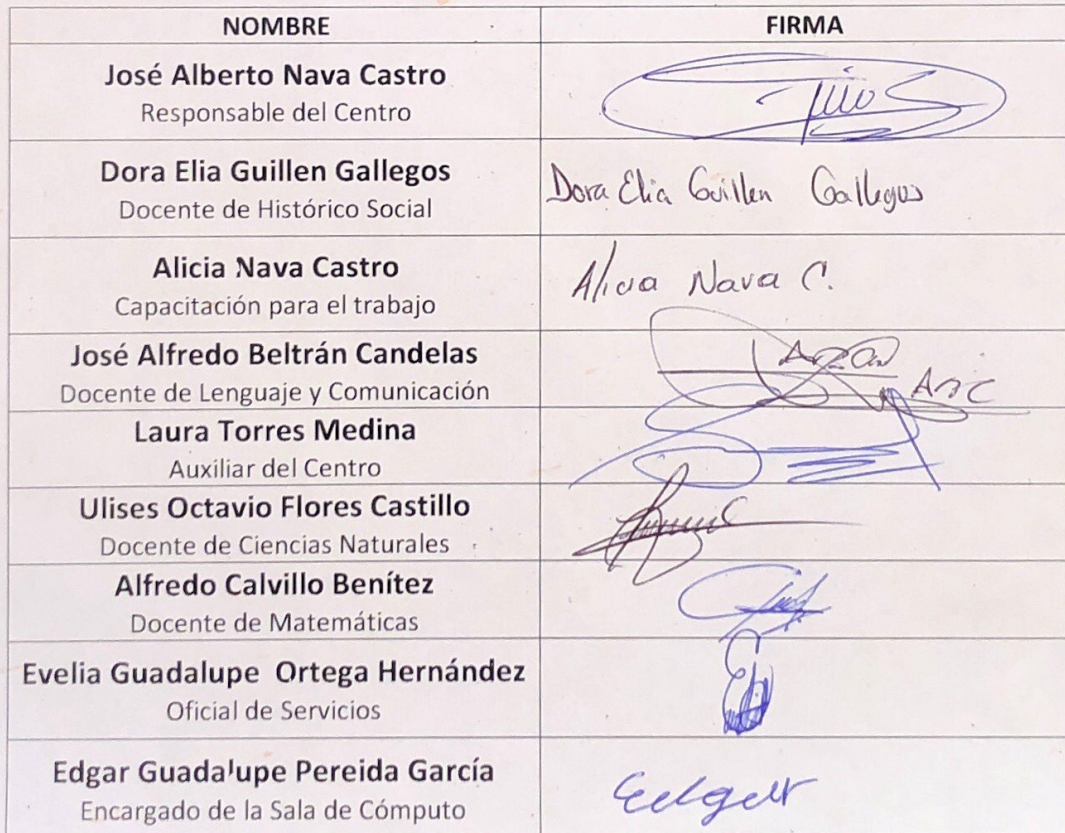 NOMBRE FIRMA
José Alberto Nava Castro
Responsable del Centro
Dora Elia Guillen Gallegos Dora Elia Guillen Gallegos
Docente de Histórico Social
Alicia Nava Castro Alicia Nava C.
Capacitación para el trabajo
José Alfredo Beltrán Candelas
Docente de Lenguaje y Comunicación
Laura Torres Medina
Auxiliar del Centro
Ulises Octavio Flores Castillo
Docente de Ciencias Naturales
Alfredo Calvillo Benítez
Docente de Matemáticas
Evelia Guadalupe Ortega Hernández
Oficial de Servicios
Edgar Guadalupe Pereida García
Encargado de la Sala de Cómputo